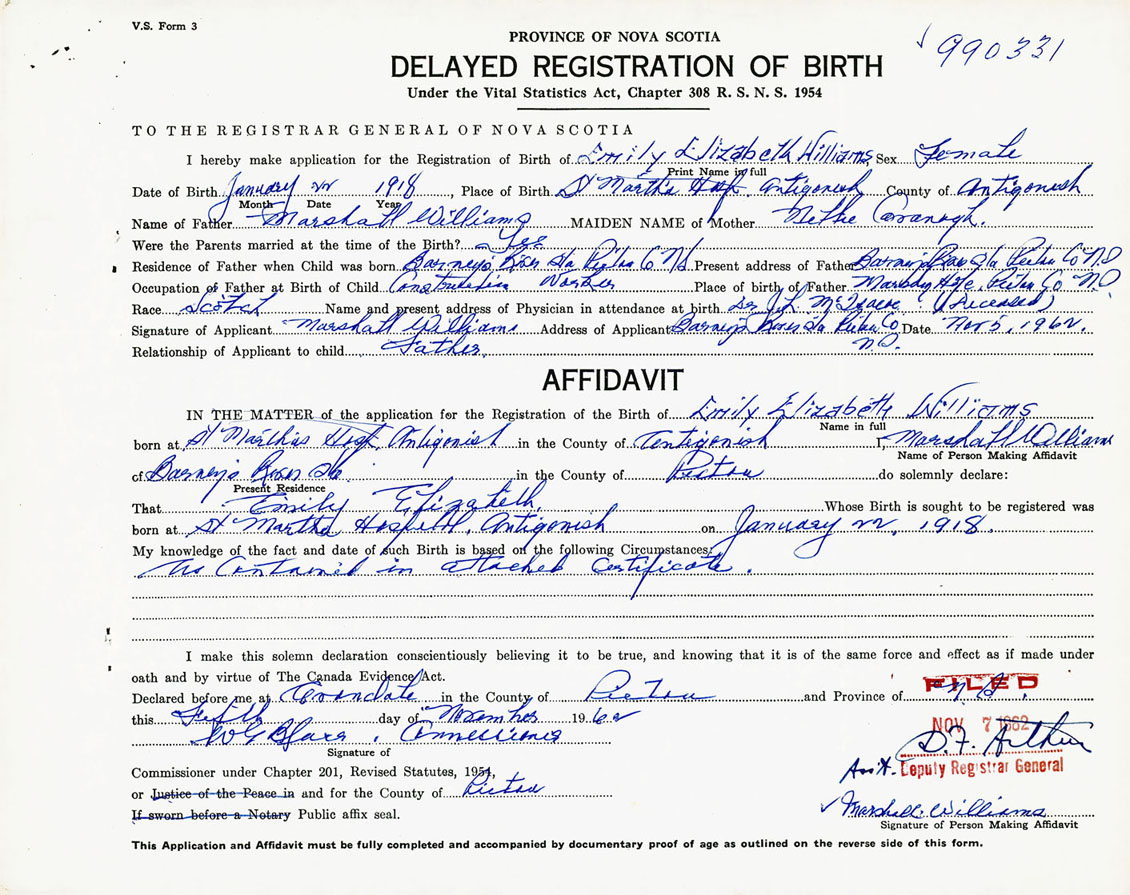 V.S. Form 3
PROVINCE OF NOVA SCOTIA
990331
DELAYED REGISTRATION OF BIRTH
Under the Vital Statistics Act, Chapter 308 R. S. N. S. 1954
TO THE REGISTRAR GENERAL OF NOVA SCOTIA
I hereby make application for the Registration of Birth of Emily Elizabeth Williams Sex Female
Print Name in full
Date of Birth January 22 1918, Place of Birth St Martha Hosp. Antigonish County of Antigonish
Month Date Year
Name of Father Marshall Williams MAIDEN NAME of Mother Nettie Cavanagh.
Were the Parents married at the time of the Birth? Yes
Residence of Father when Child was born Barney's River Sta Pictou Co NS Present address of Father Barneys River Sta Pictou Co NS
Occupation of Father at Birth of Child Construction Worker Place of birth of Father Pictou Co. NS
Race Scotch Name and present address of Physician in attendance at birth Dr. McIsaac (Deceased)
Signature of Applicant Marshall Williams Address of Applicant Barneys River Sta Pictou Co Date Nov 5, 1962.
N.S.
Relationship of Applicant to child Father.
AFFIDAVIT
IN THE MATTER of the application for the Registration of the Birth of Emily Elizabeth Williams
Name in full
born at St Marthas Hosp. Antigonish in the County of Antigonish I, Marshall Williams
Name of Person Making Affidavit
of Barneys River Sta in the County of Pictou do solemnly declare:
Present Residence
That Emily Elizabeth. Whose Birth is sought to be registered was
born at St Martha Hospital, Antigonish on January 22, 1918.
My knowledge of the fact and date of such Birth is based on the following Circumstances:
As Contained in attached Certificate.
I make this solemn declaration conscientiously believing it to be true, and knowing that it is of the same force and effect as if made under
oath and by virtue of The Canada Evidence Act.
Declared before me at Avondale in the County of Pictou and Province of N.S.
FILED
this Fifth day of November 1962
NOV 7 1962
Commissioner
D.F. Arthur
Signature of
Asst. Deputy Registrar General
Commissioner under Chapter 201, Revised Statutes, 1954,
or Justice of the Peace in and for the County of Pictou
Marshall Williams
If sworn before a Notary Public affix seal.
Signature of Person Making Affidavit
This Application and Affidavit must be fully completed and accompanied by documentary proof of age as outlined on the reverse side of this form.